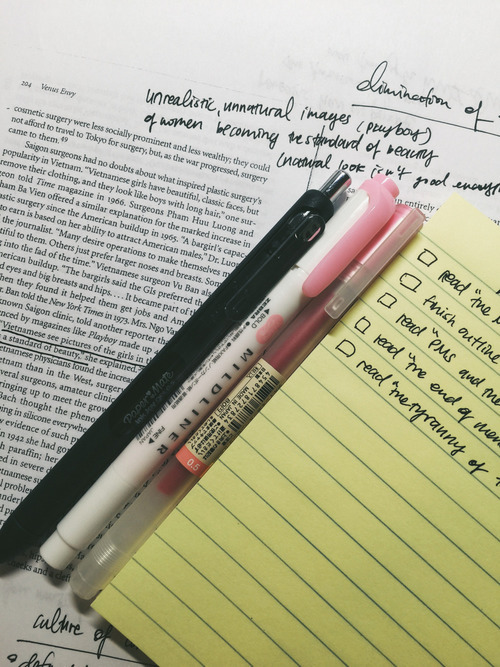 204 Venus Envy
elimination of
unrealistic, unnatural images (playboy)
of women becoming the standard of beauty
(natural look isn't good enough
cosmetic surgery were less socially prominent and less wealthy; they could
not afford to travel to Tokyo for surgery, but, as the war progressed, surgery
came to them.49
Saigon surgeons had no doubts about what inspired plastic surgery's
popularity in Vietnam. "Vietnamese girls have beautiful, classic faces, but
remove their clothing, and they look like boys with long hair," one sur
geon told Time magazine in 1966. Surgeons Pham Huu Luong and
ham Ba Vien offered a similar explanation for the marked increase in
astic surgery since the American buildup in 1966. "A bargirl's capac
earn is based on her ability to attract American males," Dr. Luo
the journalist. "Many desire operations to make themselves m
tiful to them. Others just prefer larger noses and breasts. Som
into the fad of the time." Vietnamese surgeon Vu Ban al
buildup. "The bargirls said the GIs preferred
d eyes and big breasts and hips. . . . It became part of
hen they found it helped them get jobs and
Ban told the New York Times in 1973. Mrs. Ngo V
nown Saigon clinic, told another reporter tha
enced by magazines like Playboy made up
"Vietnamese see pictures of the girls in
a standard of beauty," she explained.
etnamese physicians found the increa
nam than in the West, surger
several surgeons, amateur clinic
ringing up to meet the grow
Bach thought the phenom
ing in silicone everywhe
evidence of such pr
n 1942 she had go
h paraffin; her
ed in severe
vietnam
under
in
ks and a
MILDLINER
BOLD
FINE
0.5
read "the
finish outline
read "PMS and the
read "the end of men
read "the tyranny of
culture of